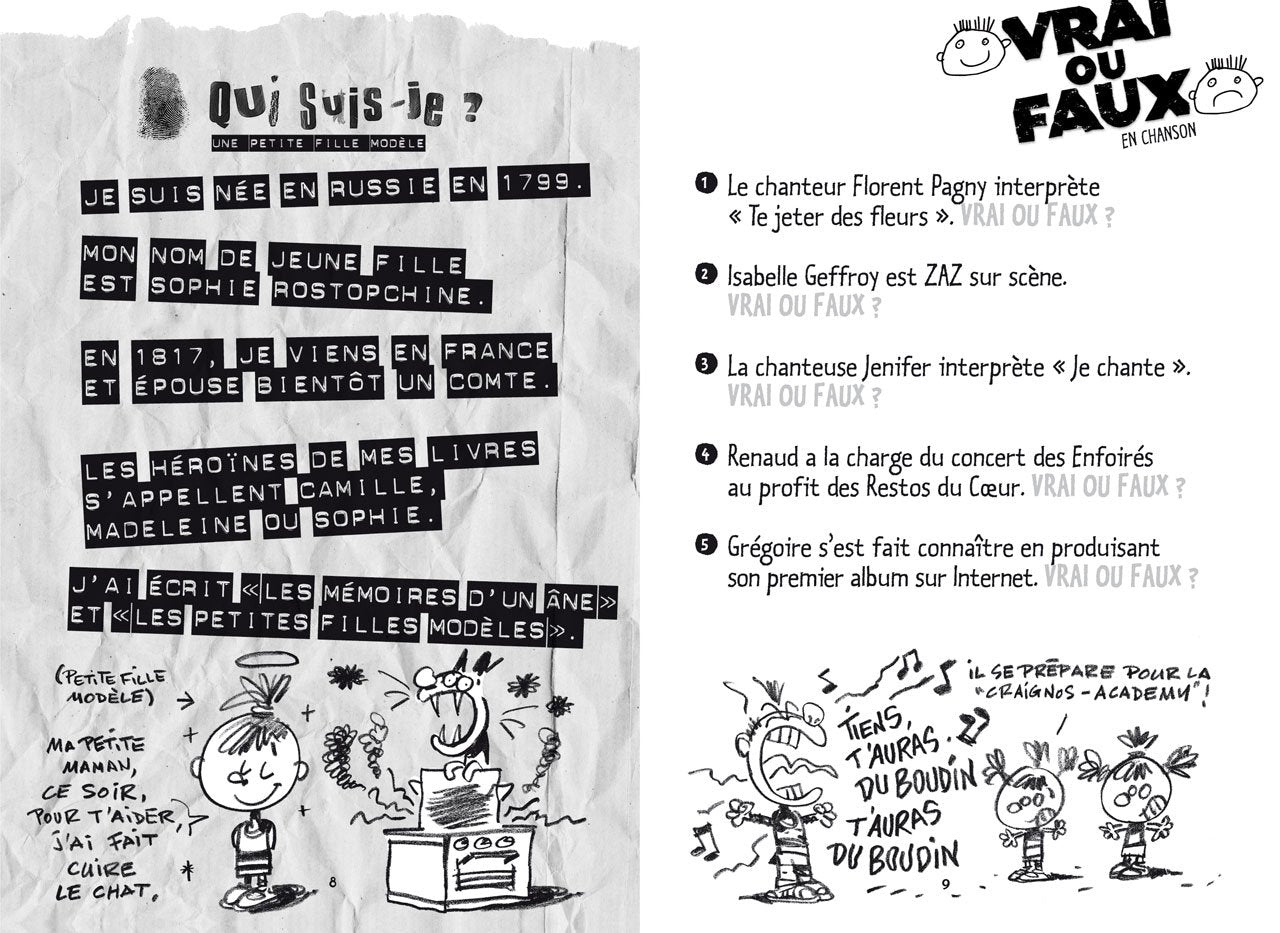 Qui Suis-je ?
UNE PETITE FILLE MODÈLE
JE SUIS NÉE EN RUSSIE EN 1799.
MON NOM DE JEUNE FILLE
EST SOPHIE ROSTOPCHINE.
EN 1817, JE VIENS EN FRANCE
ET ÉPOUSE BIENTÔT UN COMTE.
LES HÉROÏNES DE MES LIVRES
S'APPELLENT CAMILLE,
MADELEINE OU SOPHIE.
J'AI ÉCRIT «LES MÉMOIRES D'UN ÂNE»
ET «LES PETITES FILLES MODÈLES».
(PETITE FILLE
MODÈLE)
MA PETITE
MAMAN,
CE SOIR,
POUR T'AIDER,
J'AI FAIT
CUIRE
LE CHAT.
8
VRAI
OU
FAUX
EN CHANSON
1 Le chanteur Florent Pagny interprète
« Te jeter des fleurs ». VRAI OU FAUX ?
2 Isabelle Geffroy est ZAZ sur scène.
VRAI OU FAUX ?
3 La chanteuse Jenifer interprète « Je chante ».
VRAI OU FAUX ?
4 Renaud a la charge du concert des Enfoirés
au profit des Restos du Cœur. VRAI OU FAUX ?
5 Grégoire s'est fait connaître en produisant
son premier album sur Internet. VRAI OU FAUX ?
TIENS,
T'AURAS
DU BOUDIN
T'AURAS
DU BOUDIN
IL SE PRÉPARE POUR LA
"CRAIGNOS-ACADEMY" !
9